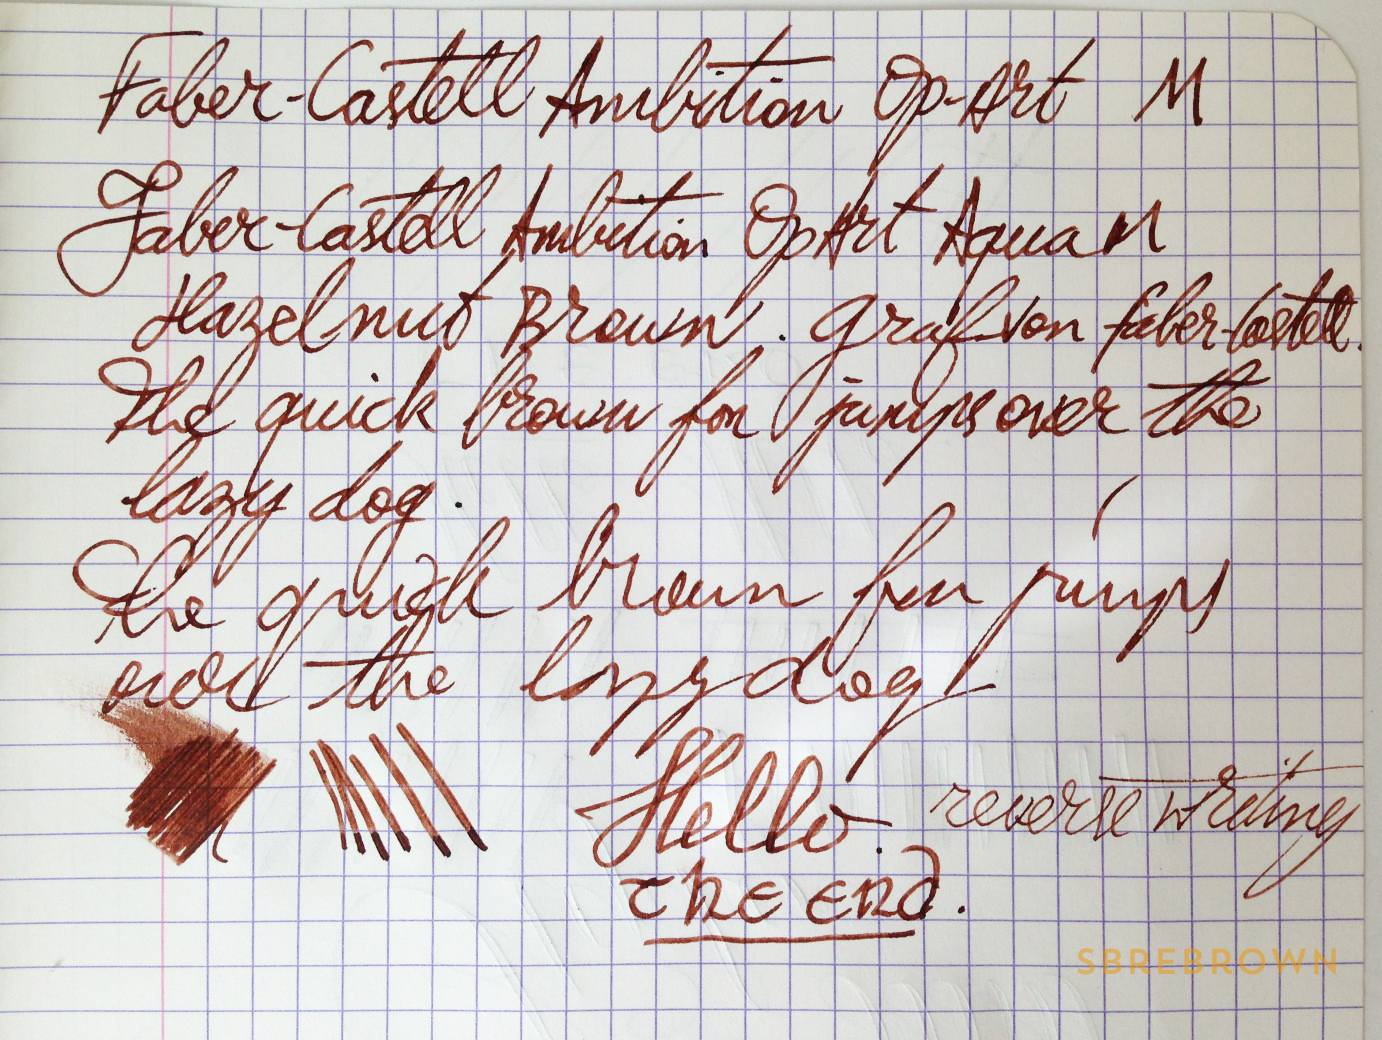 Faber-Castell Ambition Op-Art M
Faber-Castell Ambition OpArt Aqua M
Hazelnut Brown. Graf von Faber-Castell.
The quick brown fox jumps over the
lazy dog.
The quick brown fox jumps
over the lazy dog!
Hello. reverse writing
the end.
SBREBROWN